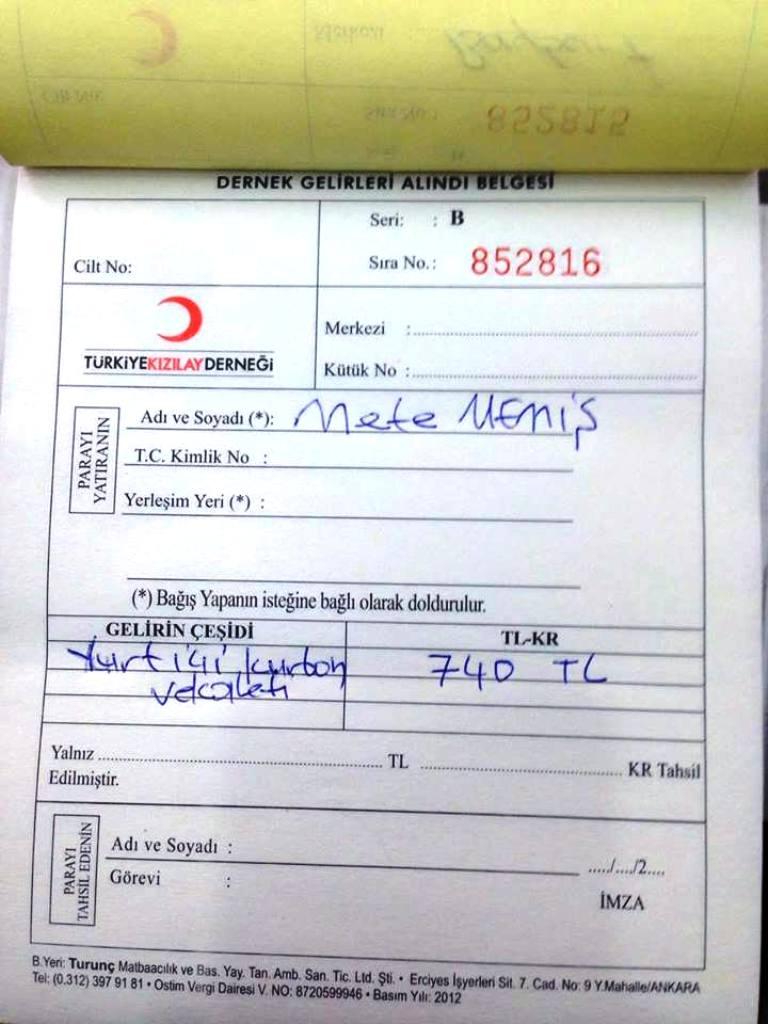 Merkezi
Cilt No:
Sıra No.:
852815
DERNEK GELİRLERİ ALINDI BELGESİ
Seri: : B
Cilt No:
Sıra No.: 852816
TÜRKİYEKIZILAYDERNEĞİ
Merkezi :
Kütük No :
PARAYI YATIRANIN
Adı ve Soyadı (*): Mete MEMİŞ
T.C. Kimlik No :
Yerleşim Yeri (*) :
(*) Bağış Yapanın isteğine bağlı olarak doldurulur.
GELİRİN ÇEŞİDİ TL-KR
Yurtiçi kurban 740 TL
vekaleti
Yalnız ........ TL ........ KR Tahsil
Edilmiştir.
PARAYI TAHSİL EDENİN
Adı ve Soyadı :
Görevi :
...../..../2....
İMZA
B.Yeri: Turunç Matbaacılık ve Bas. Yay. Tan. Amb. San. Tic. Ltd. Şti. • Erciyes İşyerleri Sit. 7. Cad. No: 9 Y.Mahalle/ANKARA
Tel: (0.312) 397 91 81 • Ostim Vergi Dairesi V. NO: 8720599946 • Basım Yılı: 2012